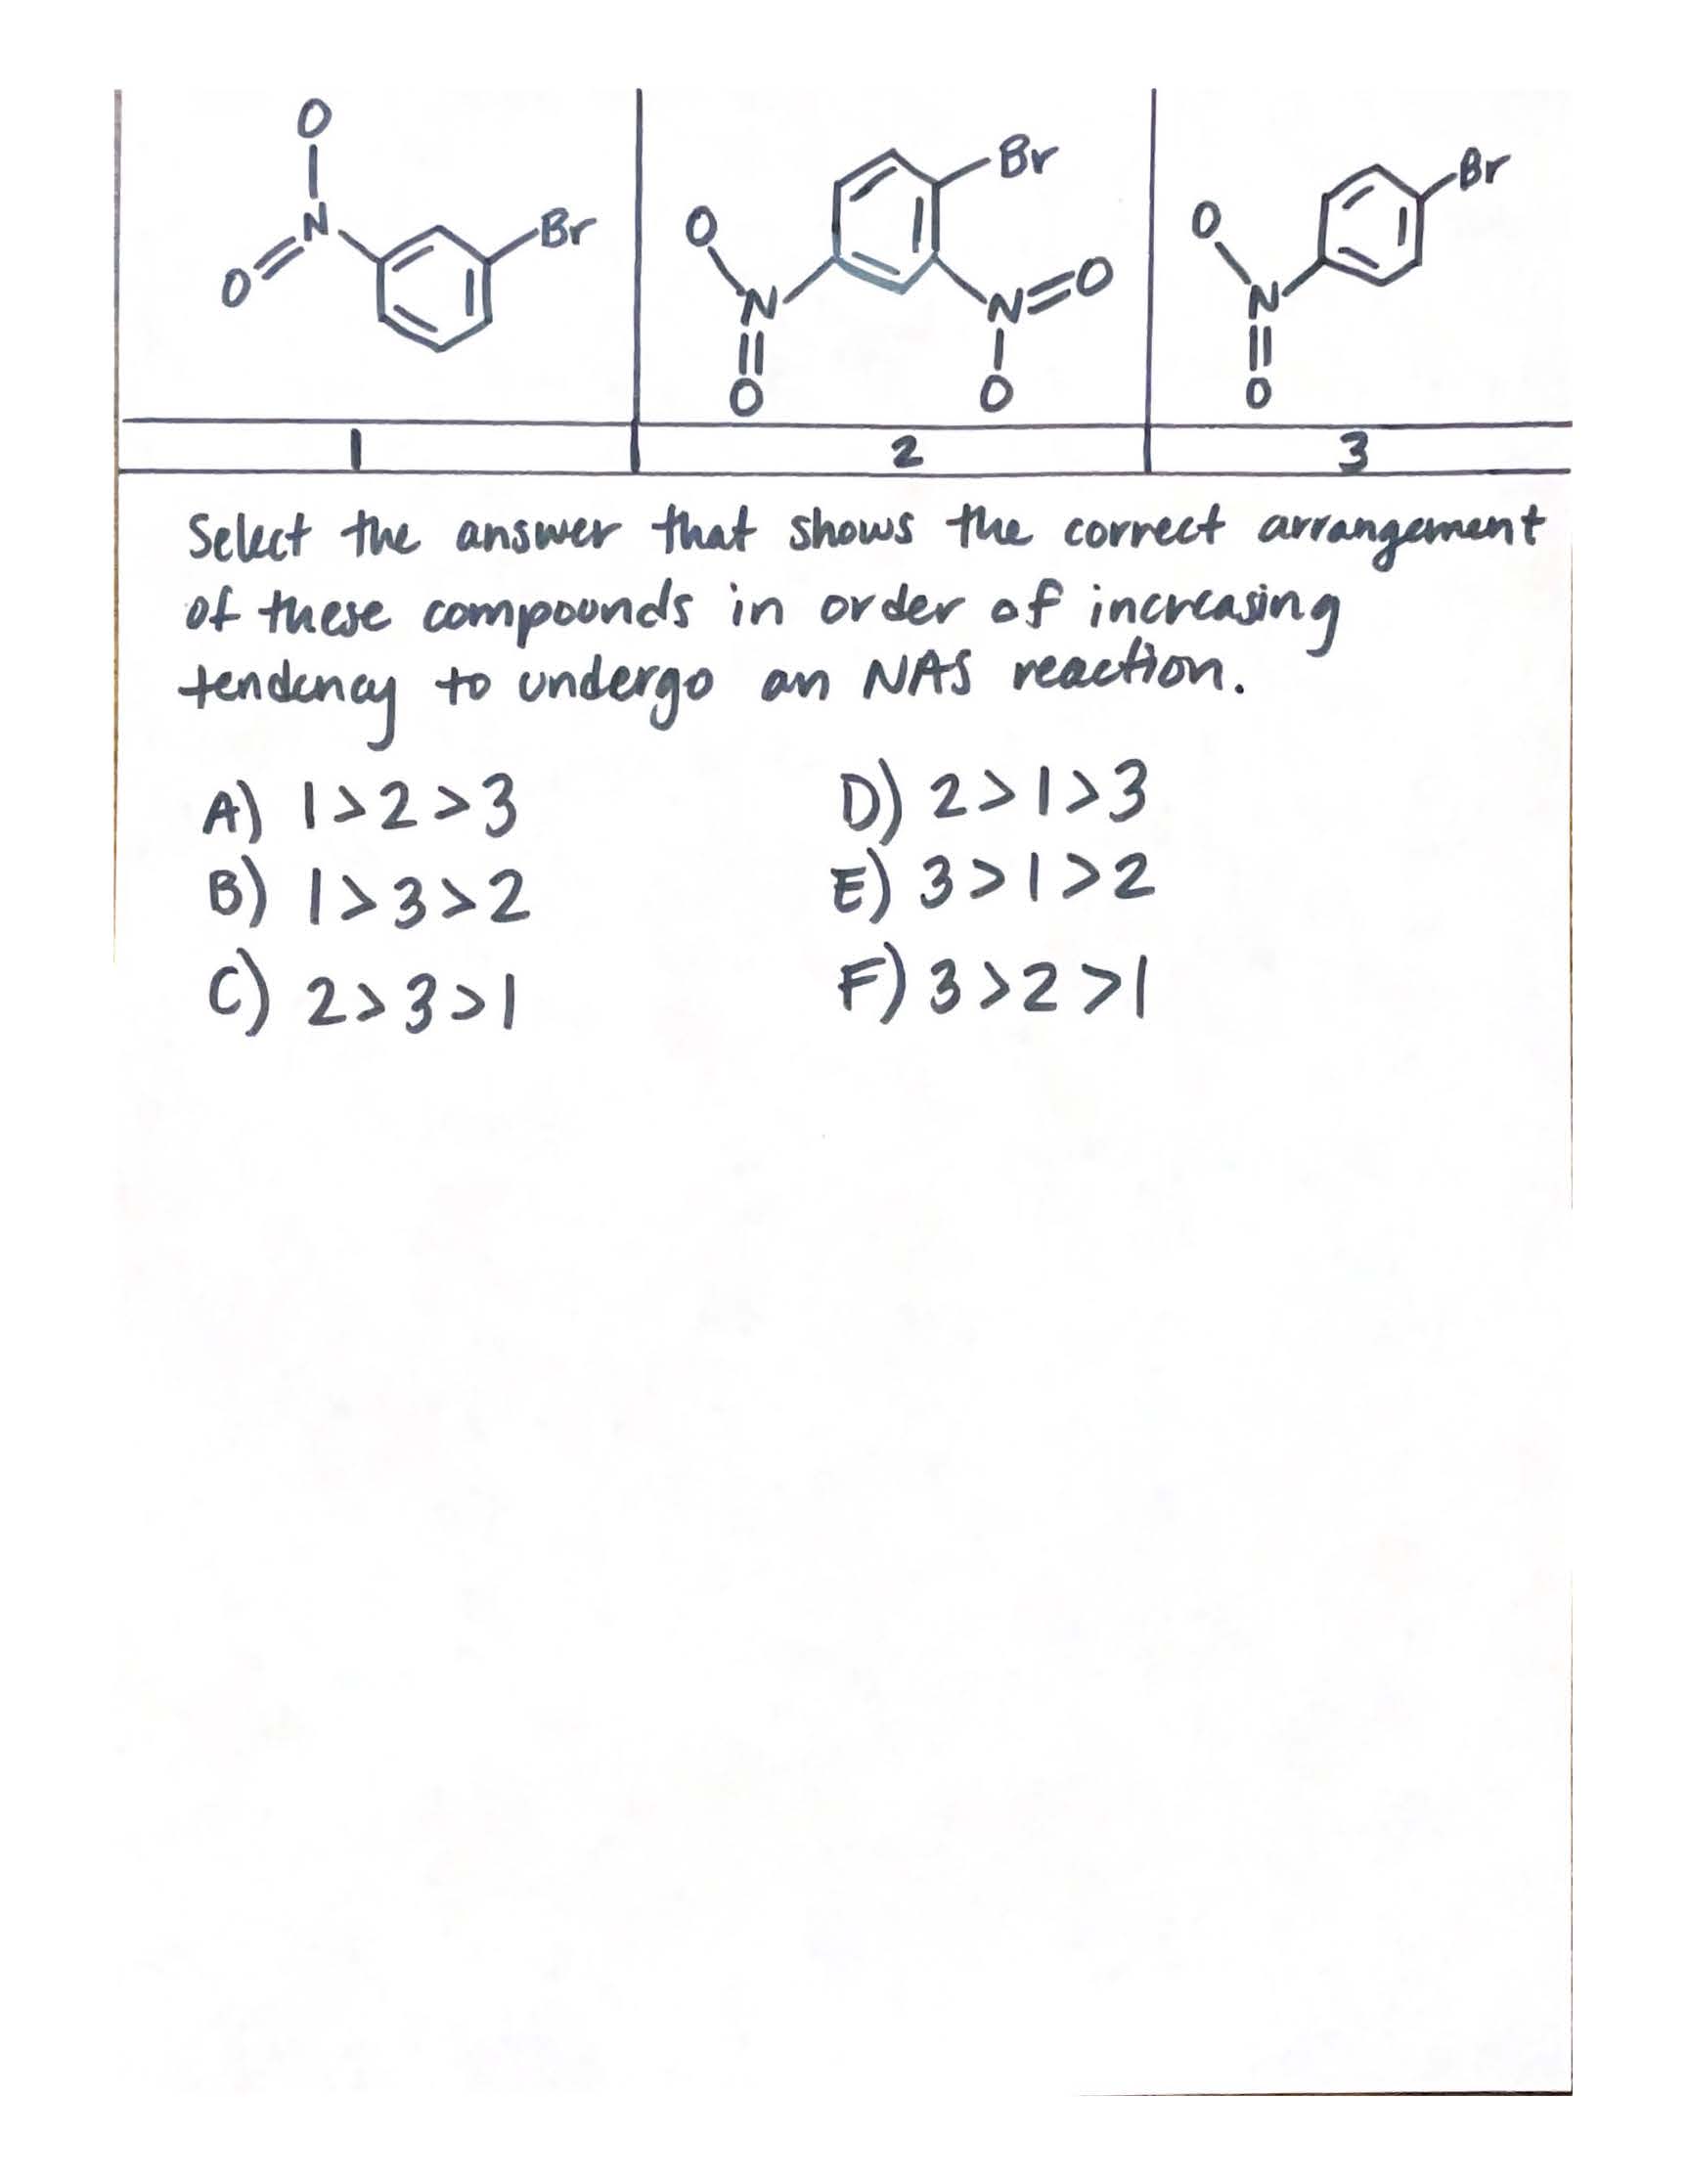 O
N
O
Br
Br
O
N
O
N
O
O
Br
O
N
O
1 2 3
Select the answer that shows the correct arrangement
of these compounds in order of increasing
tendency to undergo an NAS reaction.
A) 1>2>3
B) 1>3>2
C) 2>3>1
D) 2>1>3
E) 3>1>2
F) 3>2>1